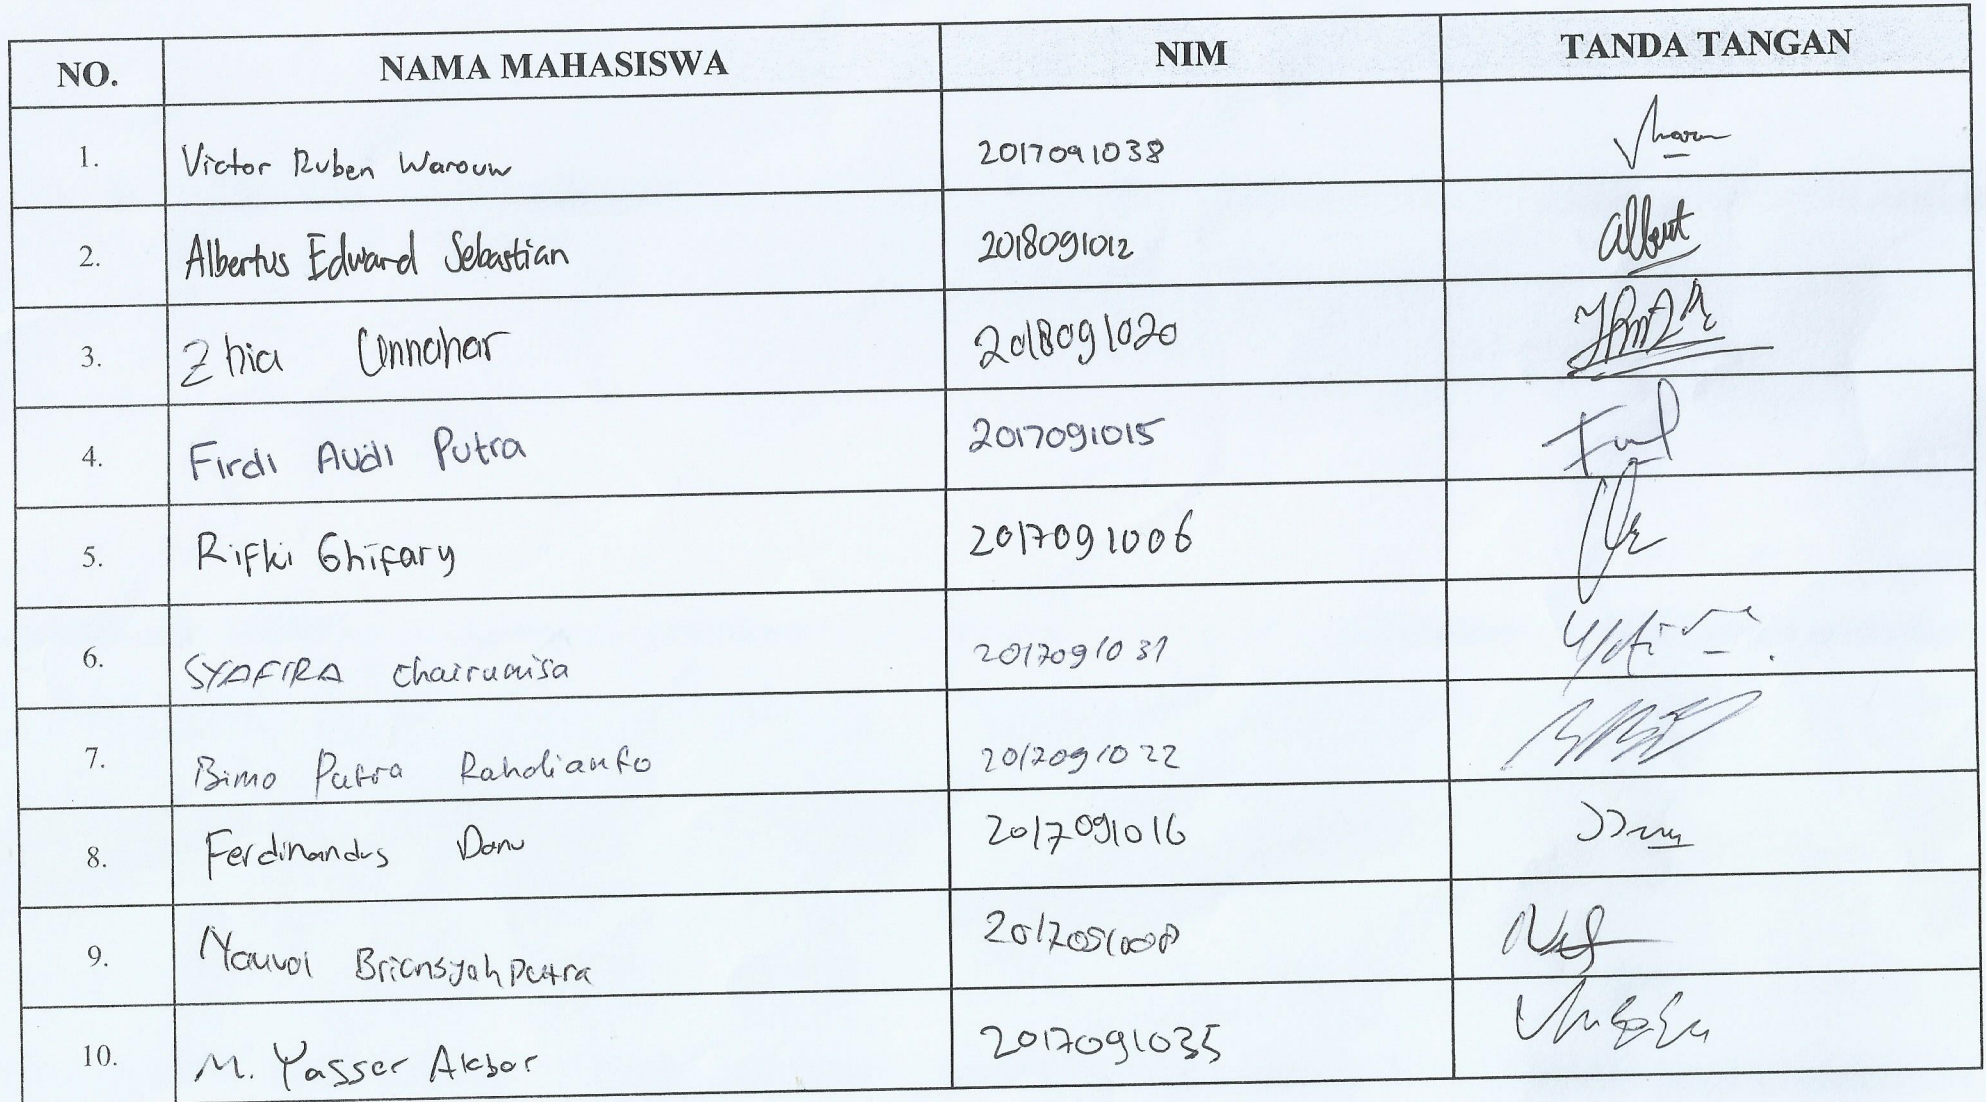 NO. NAMA MAHASISWA NIM TANDA TANGAN
1. Victor Ruben Warouw 2017091038
2. Albertus Edward Sebastian 2018091012 albert
3. Zhia Annahar 2018091020
4. Firdi Audi Putra 2017091015
5. Rifki Ghifary 2017091006
6. SYAFIRA Chairunnisa 2017091031
7. Bimo Putra Rahdianto 2017091022
8. Ferdinandus Danu 2017091016
9. Briansyah Putra 2017091008
10. M. Yasser Akbar 2017091035